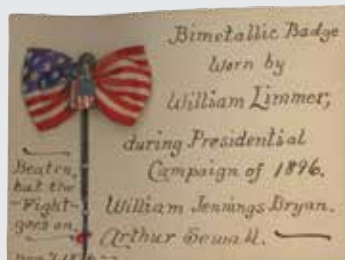 Bimetallic Badge
Worn by
William Limmer,
during Presidential
Campaign of 1896.
William Jennings Bryan.
Arthur Sewall.
Beaten,
but the
Fight
goes on.